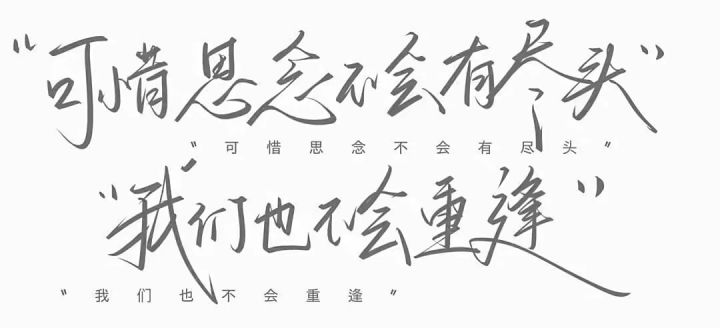 "可惜思念不会有尽头"
"可惜思念不会有尽头"
"我们也不会重逢"
"我们也不会重逢"